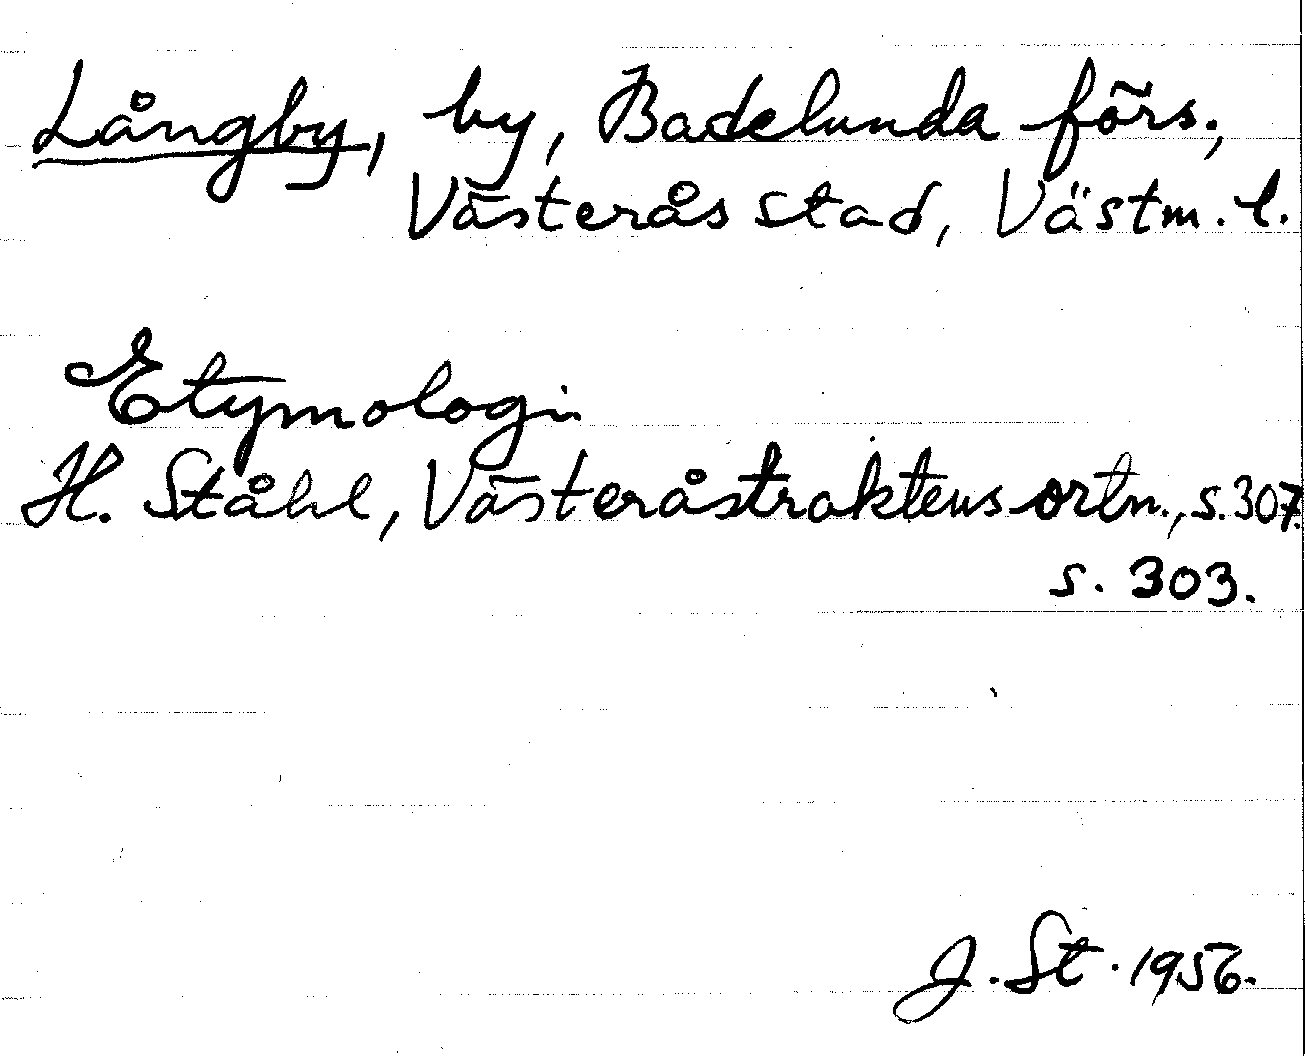 Långby, by, Badelunda förs.,
Västerås stad, Västm. l.
Etymologi
H. Ståhl, Västeråstraktens ortn., s. 307.
s. 303.
J. St. 1956.